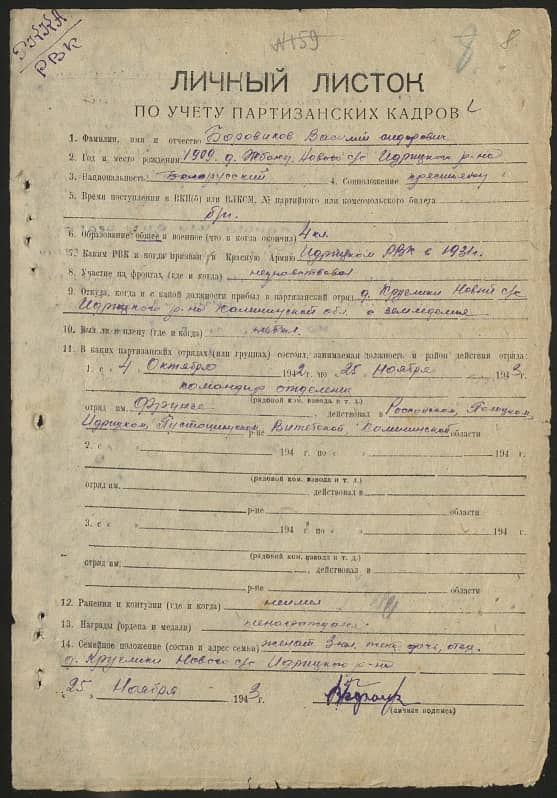 РККА
РВК
N 159
8 8
ЛИЧНЫЙ ЛИСТОК
ПО УЧЕТУ ПАРТИЗАНСКИХ КАДРОВ
1. Фамилия, имя и отчество Боровиков Василий Сидорович
2. Год и место рождения 1909 д. Нового с/с Идрицкого р-на
3. Национальность Белорусский 4. Соцположение крестьянин
5. Время поступления в ВКП(б) или ВЛКСМ, № партийного или комсомольского билета
б/п.
6. Образование общее и военное (что и когда окончил) 4 кл.
7. Каким РВК и когда призван в Красную Армию Идрицком РВК в 1931г.
8. Участие на фронтах (где и когда) неучавствовал
9. Откуда, когда и с какой должности прибыл в партизанский отряд д. Круглики Новый с/с
Идрицкого р-на Калининской обл. с земледелия
10. Был ли в плену (где и когда) небыл.
11. В каких партизанских отрядах (или группах) состоял, занимаемая должность и район действия отряда:
1. с 4 Октября 1942 г. по 25 Ноября 1943 г.
командир отделения
(рядовой ком. взвода и т. д.)
отряд им. Фрунзе, действовал в Россонском, Полоцком,
Идрицком, Пустошинском р-не Витебской Калининской области
2. с « » 194 г. по « » 194 г.
(рядовой ком. взвода и т. д.)
отряд им. , действовал в
р-не области
3. с « » 194 г. по « » 194 г.
(рядовой ком. взвода и т. д.)
отряд им. , действовал в
р-не области
12. Ранения и контузии (где и когда) неимел
13. Награды (ордена и медали) ненагражден.
14. Семейное положение (состав и адрес семьи) женат 3 чел. жена, дочь, отец.
д. Круглики Нового с/с Идрицкого р-на
« 25 » Ноября 1943 г.
(личная подпись)